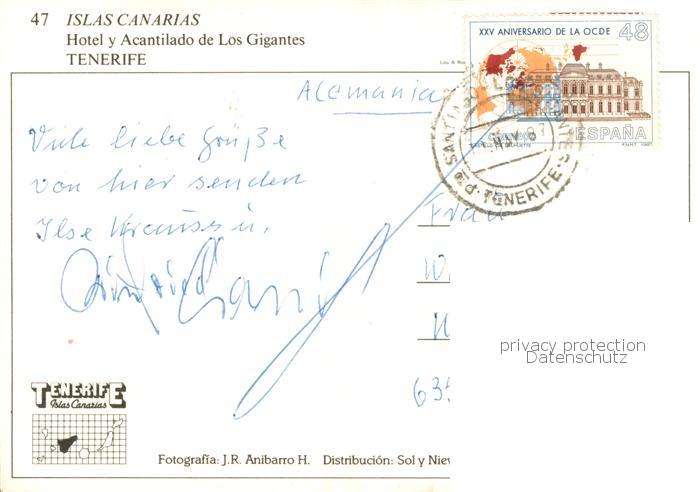 47 ISLAS CANARIAS
Hotel y Acantilado de Los Gigantes
TENERIFE
XXV ANIVERSARIO DE LA OCDE 48
ESPAÑA
SANTIAGO
TENERIFE
Alemania
Viele liebe Grüße
von hier senden
Ilse Krauses u.
Frau
W
635
privacy protection
Datenschutz
TENERIFE
Islas Canarias
Fotografía: J.R. Anibarro H. Distribución: Sol y Niev